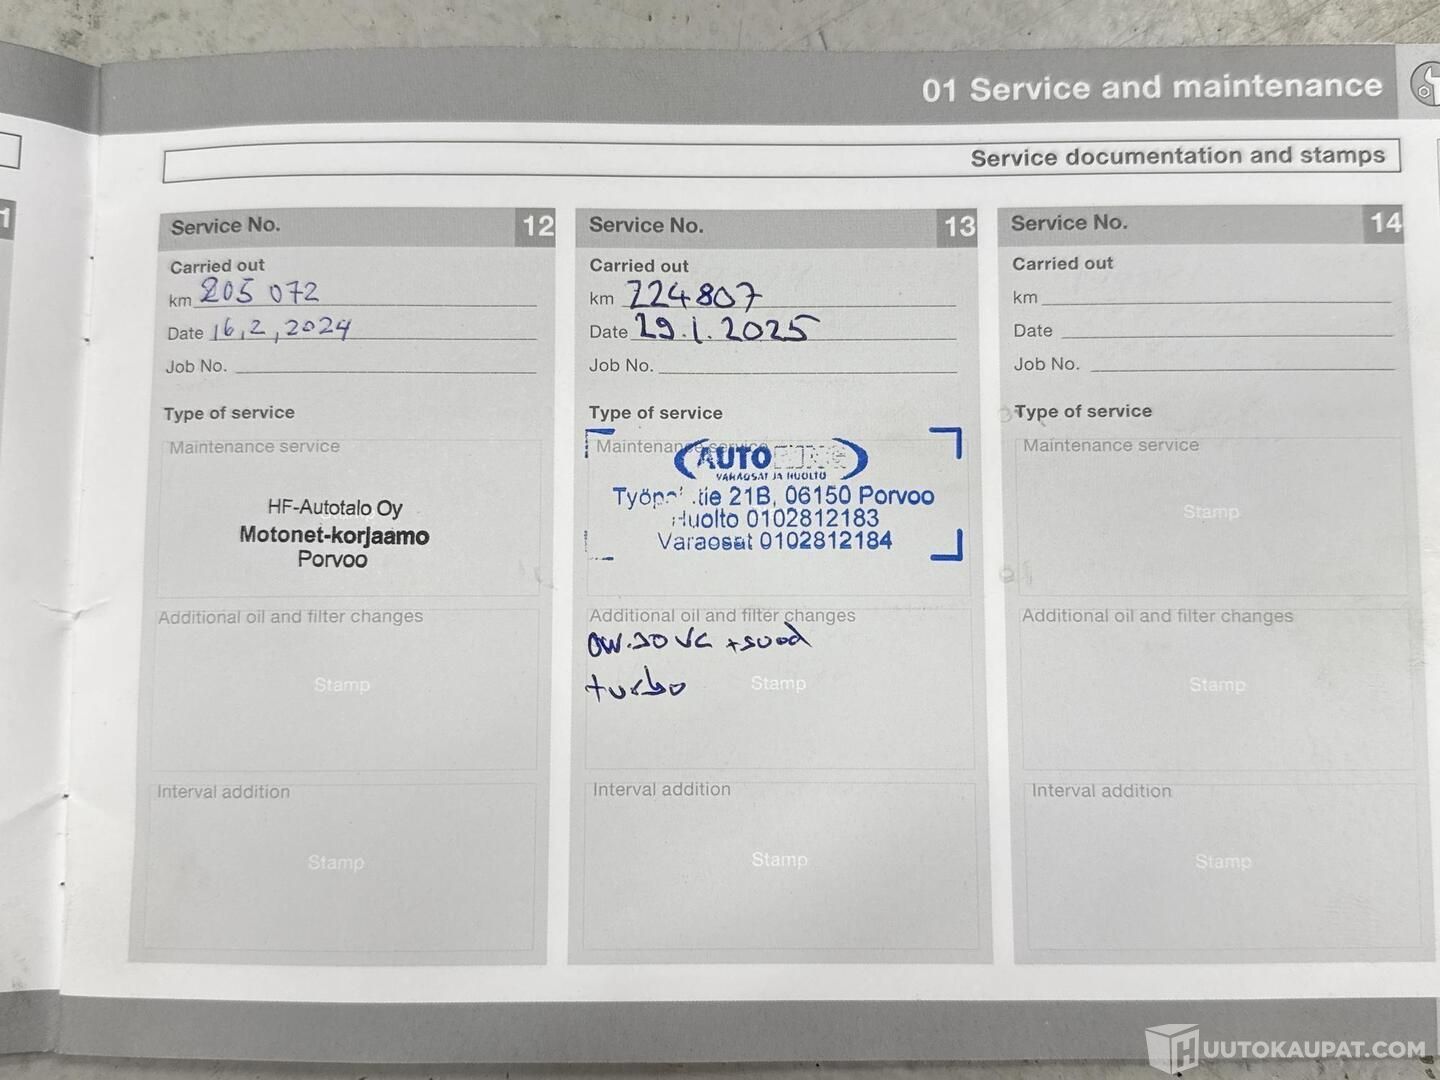 01 Service and maintenance
Service documentation and stamps
1
Service No. 12
Carried out
km 205 072
Date 16,2,2024
Job No.
Type of service
Maintenance service
HF-Autotalo Oy
Motonet-korjaamo
Porvoo
Additional oil and filter changes
Stamp
Interval addition
Stamp
Service No. 13
Carried out
km 224807
Date 29.1.2025
Job No.
Type of service
Maintenance service
AUTO
VARAOSAT JA HUOLTO
21B, 06150 Porvoo
Huolto 0102812183
Varaosat 0102812184
Additional oil and filter changes
+suod
turbo
Stamp
Interval addition
Stamp
Service No. 14
Carried out
km
Date
Job No.
Type of service
Maintenance service
Stamp
Additional oil and filter changes
Stamp
Interval addition
Stamp
HUUTOKAUPAT.COM